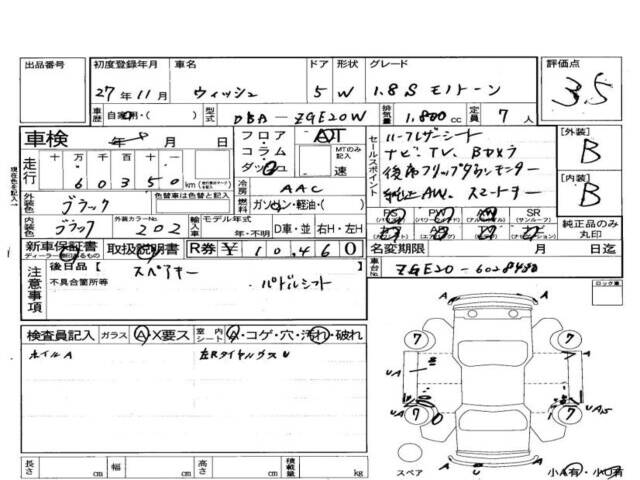 出品番号
初度登録年月 車名 ドア 形状 グレード 評価点
27年11月 ウィッシュ 5 W 1.8S モノトーン 3.5
車歴 自家用・( ) 型式 DBA-ZGE20W 排気量 1,800cc 定員 7人
車検 年 月 日
フロア AT
コラム MTのみ記入
ダッシュ 速
走行 十 万 千 百 十
60350 km
冷房 AAC
燃料 ガソリン・軽油・( )
外装色 ブラック
内装色 ブラック 外装カラーNo. 202
輸入車 モデル年式 年・不明 D車・並 右H・左H
セールスポイント
ハーフレザーシート
ナビ、TV、Bカメラ
後席フリップダウンモニター
純正AW、スマートキー
PS PW AW SR
(サンルーフ)
純正品のみ丸印
[外装] B
[内装] B
現在色を記入→
新車保証書 取扱説明書 R券 ¥10,460
名変期限 月 日迄
車台No. ZGE20-6028480
注意事項
後日品 [スペアキー ]
不具合箇所等 パドルシフト
ロック車
検査員記入 ガラス A・X要ス 室内シート A・コゲ・穴・汚れ・破れ
ホイルA
7 7 7 7
A A A A
UA UA
U
スペア
小A有・小U有
長さ cm 幅 cm 高さ cm 積載量 kg